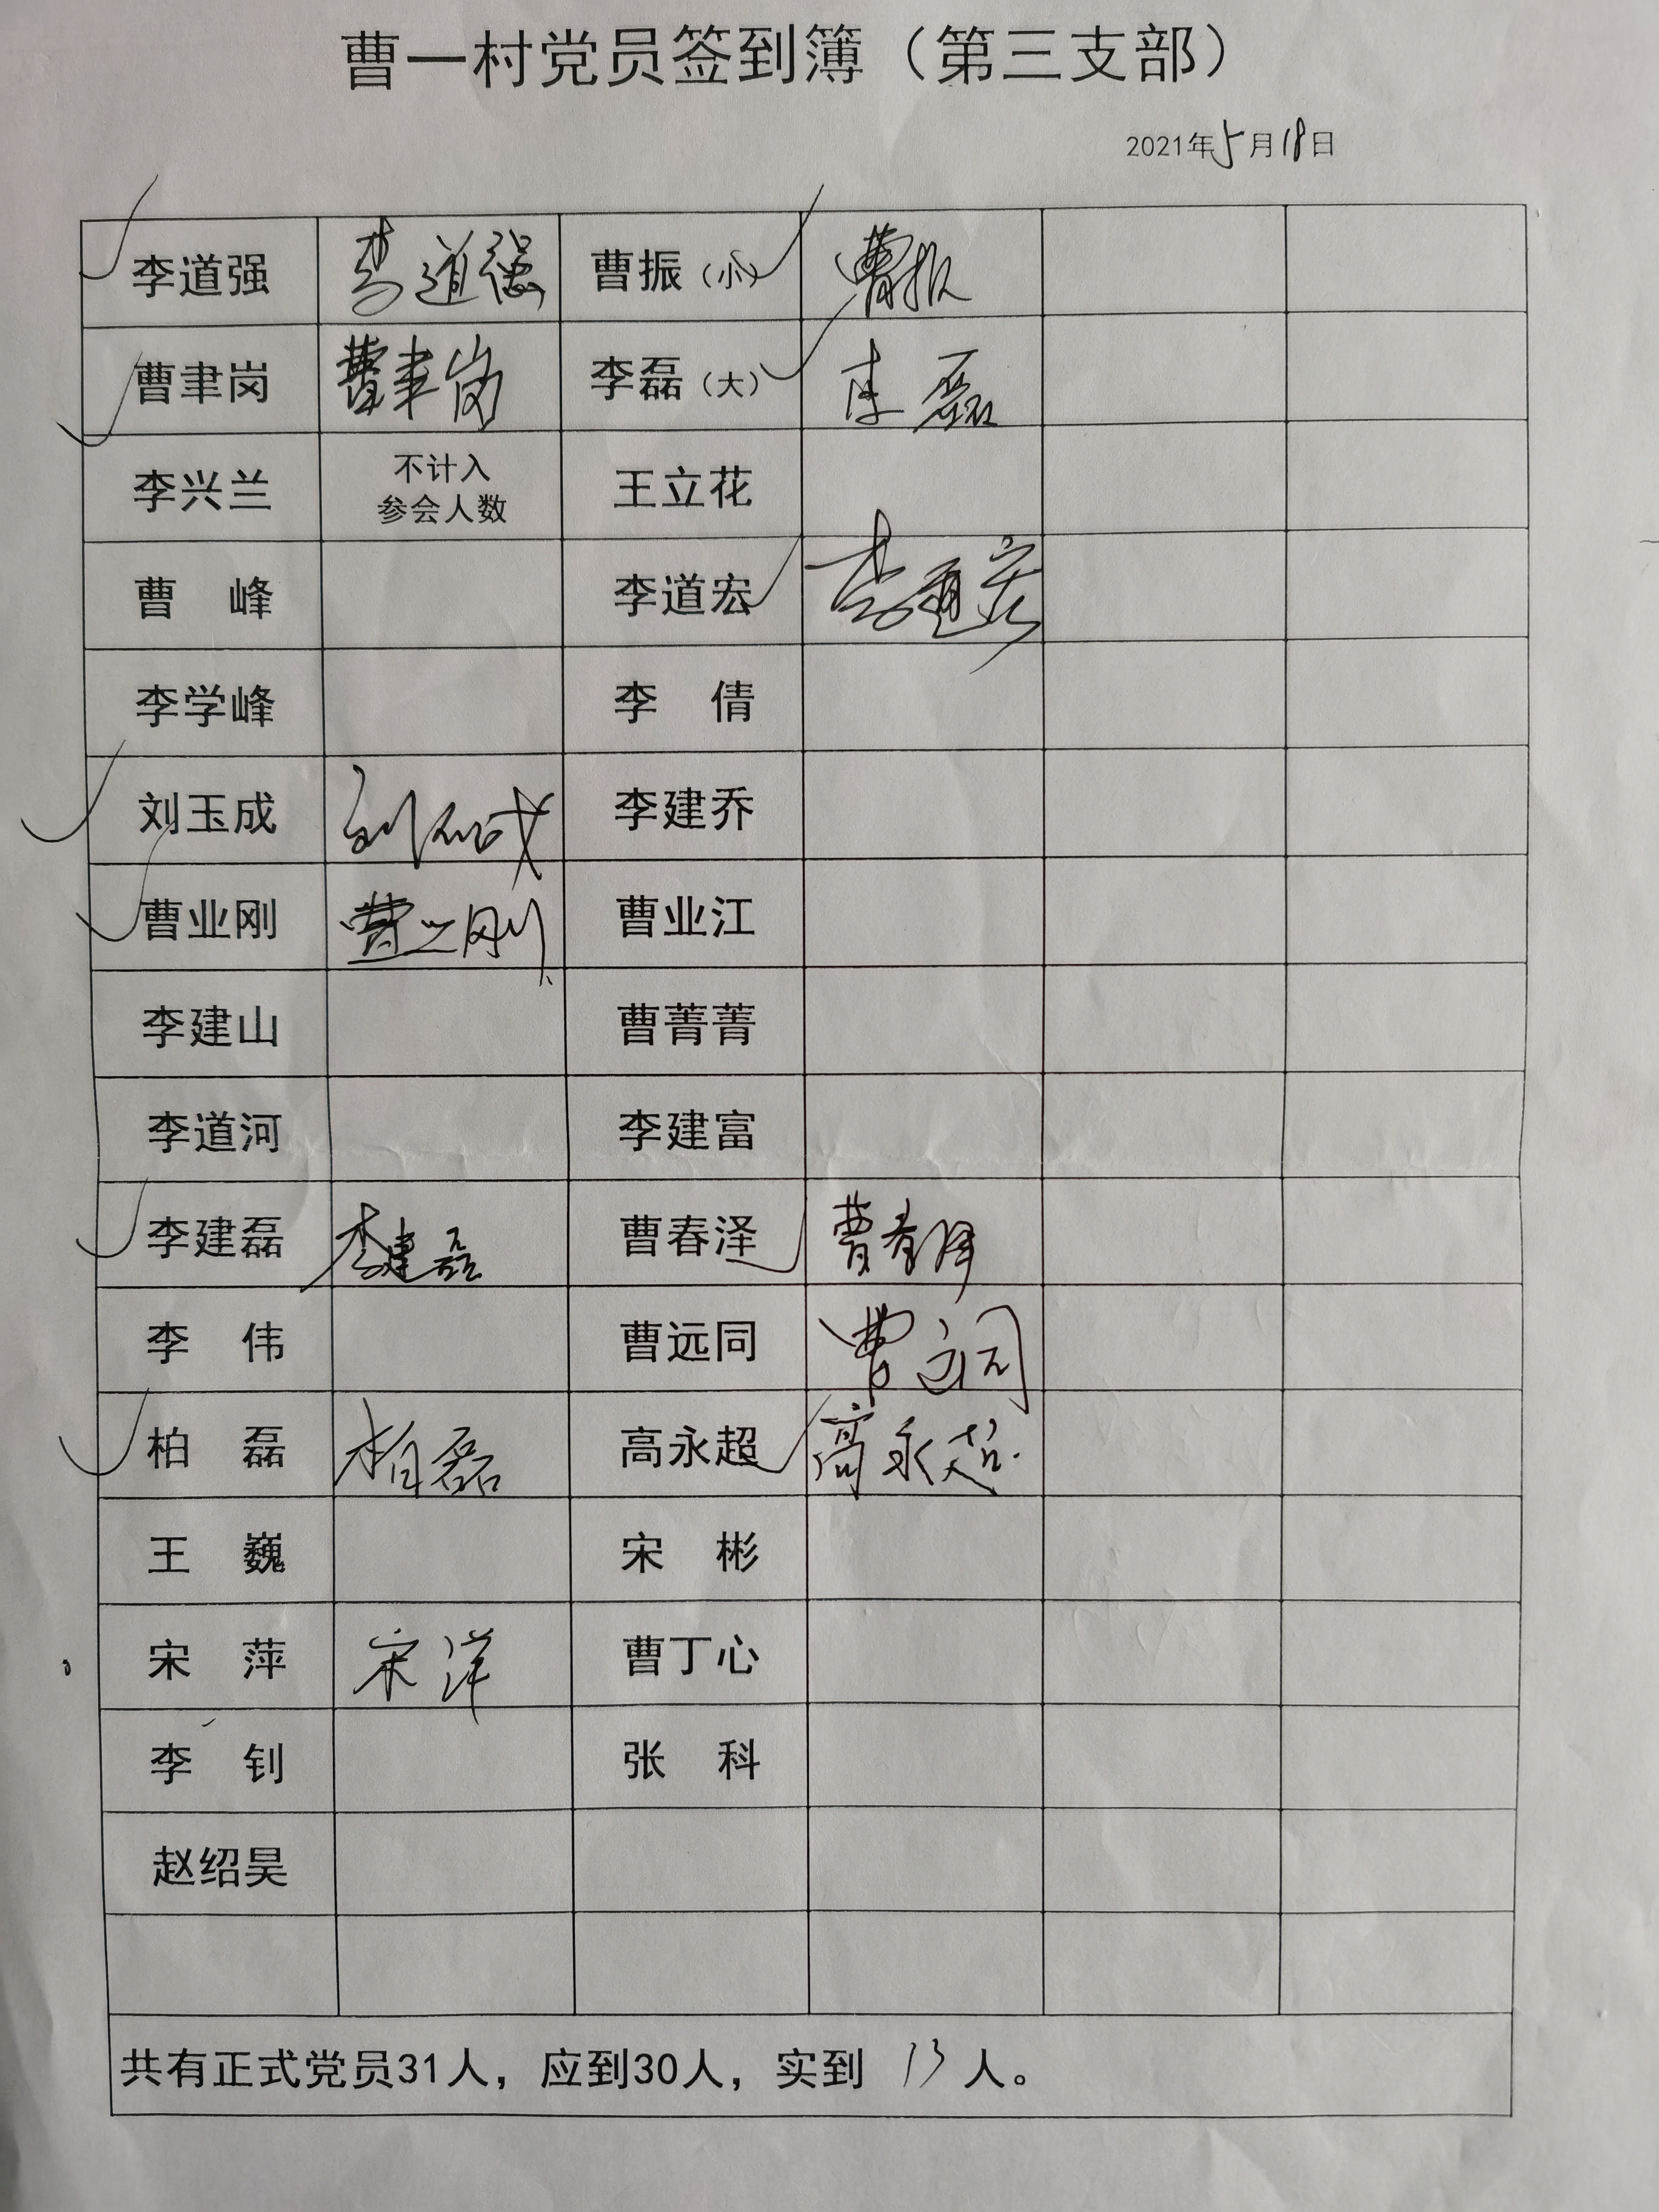 曹一村党员签到簿（第三支部）
2021年5月18日
李道强 李道强 曹振（小） 曹振
曹聿岗 曹聿岗 李磊（大） 李磊
李兴兰 不计入 参会人数 王立花
曹 峰 李道宏 李道宏
李学峰 李 倩
刘玉成 刘玉成 李建乔
曹业刚 曹业刚 曹业江
李建山 曹菁菁
李道河 李建富
李建磊 李建磊 曹春泽 曹春泽
李 伟 曹远同 曹远同
柏 磊 柏磊 高永超 高永超
王 巍 宋 彬
宋 萍 宋萍 曹丁心
李 钊 张 科
赵绍昊
共有正式党员31人，应到30人，实到 13 人。